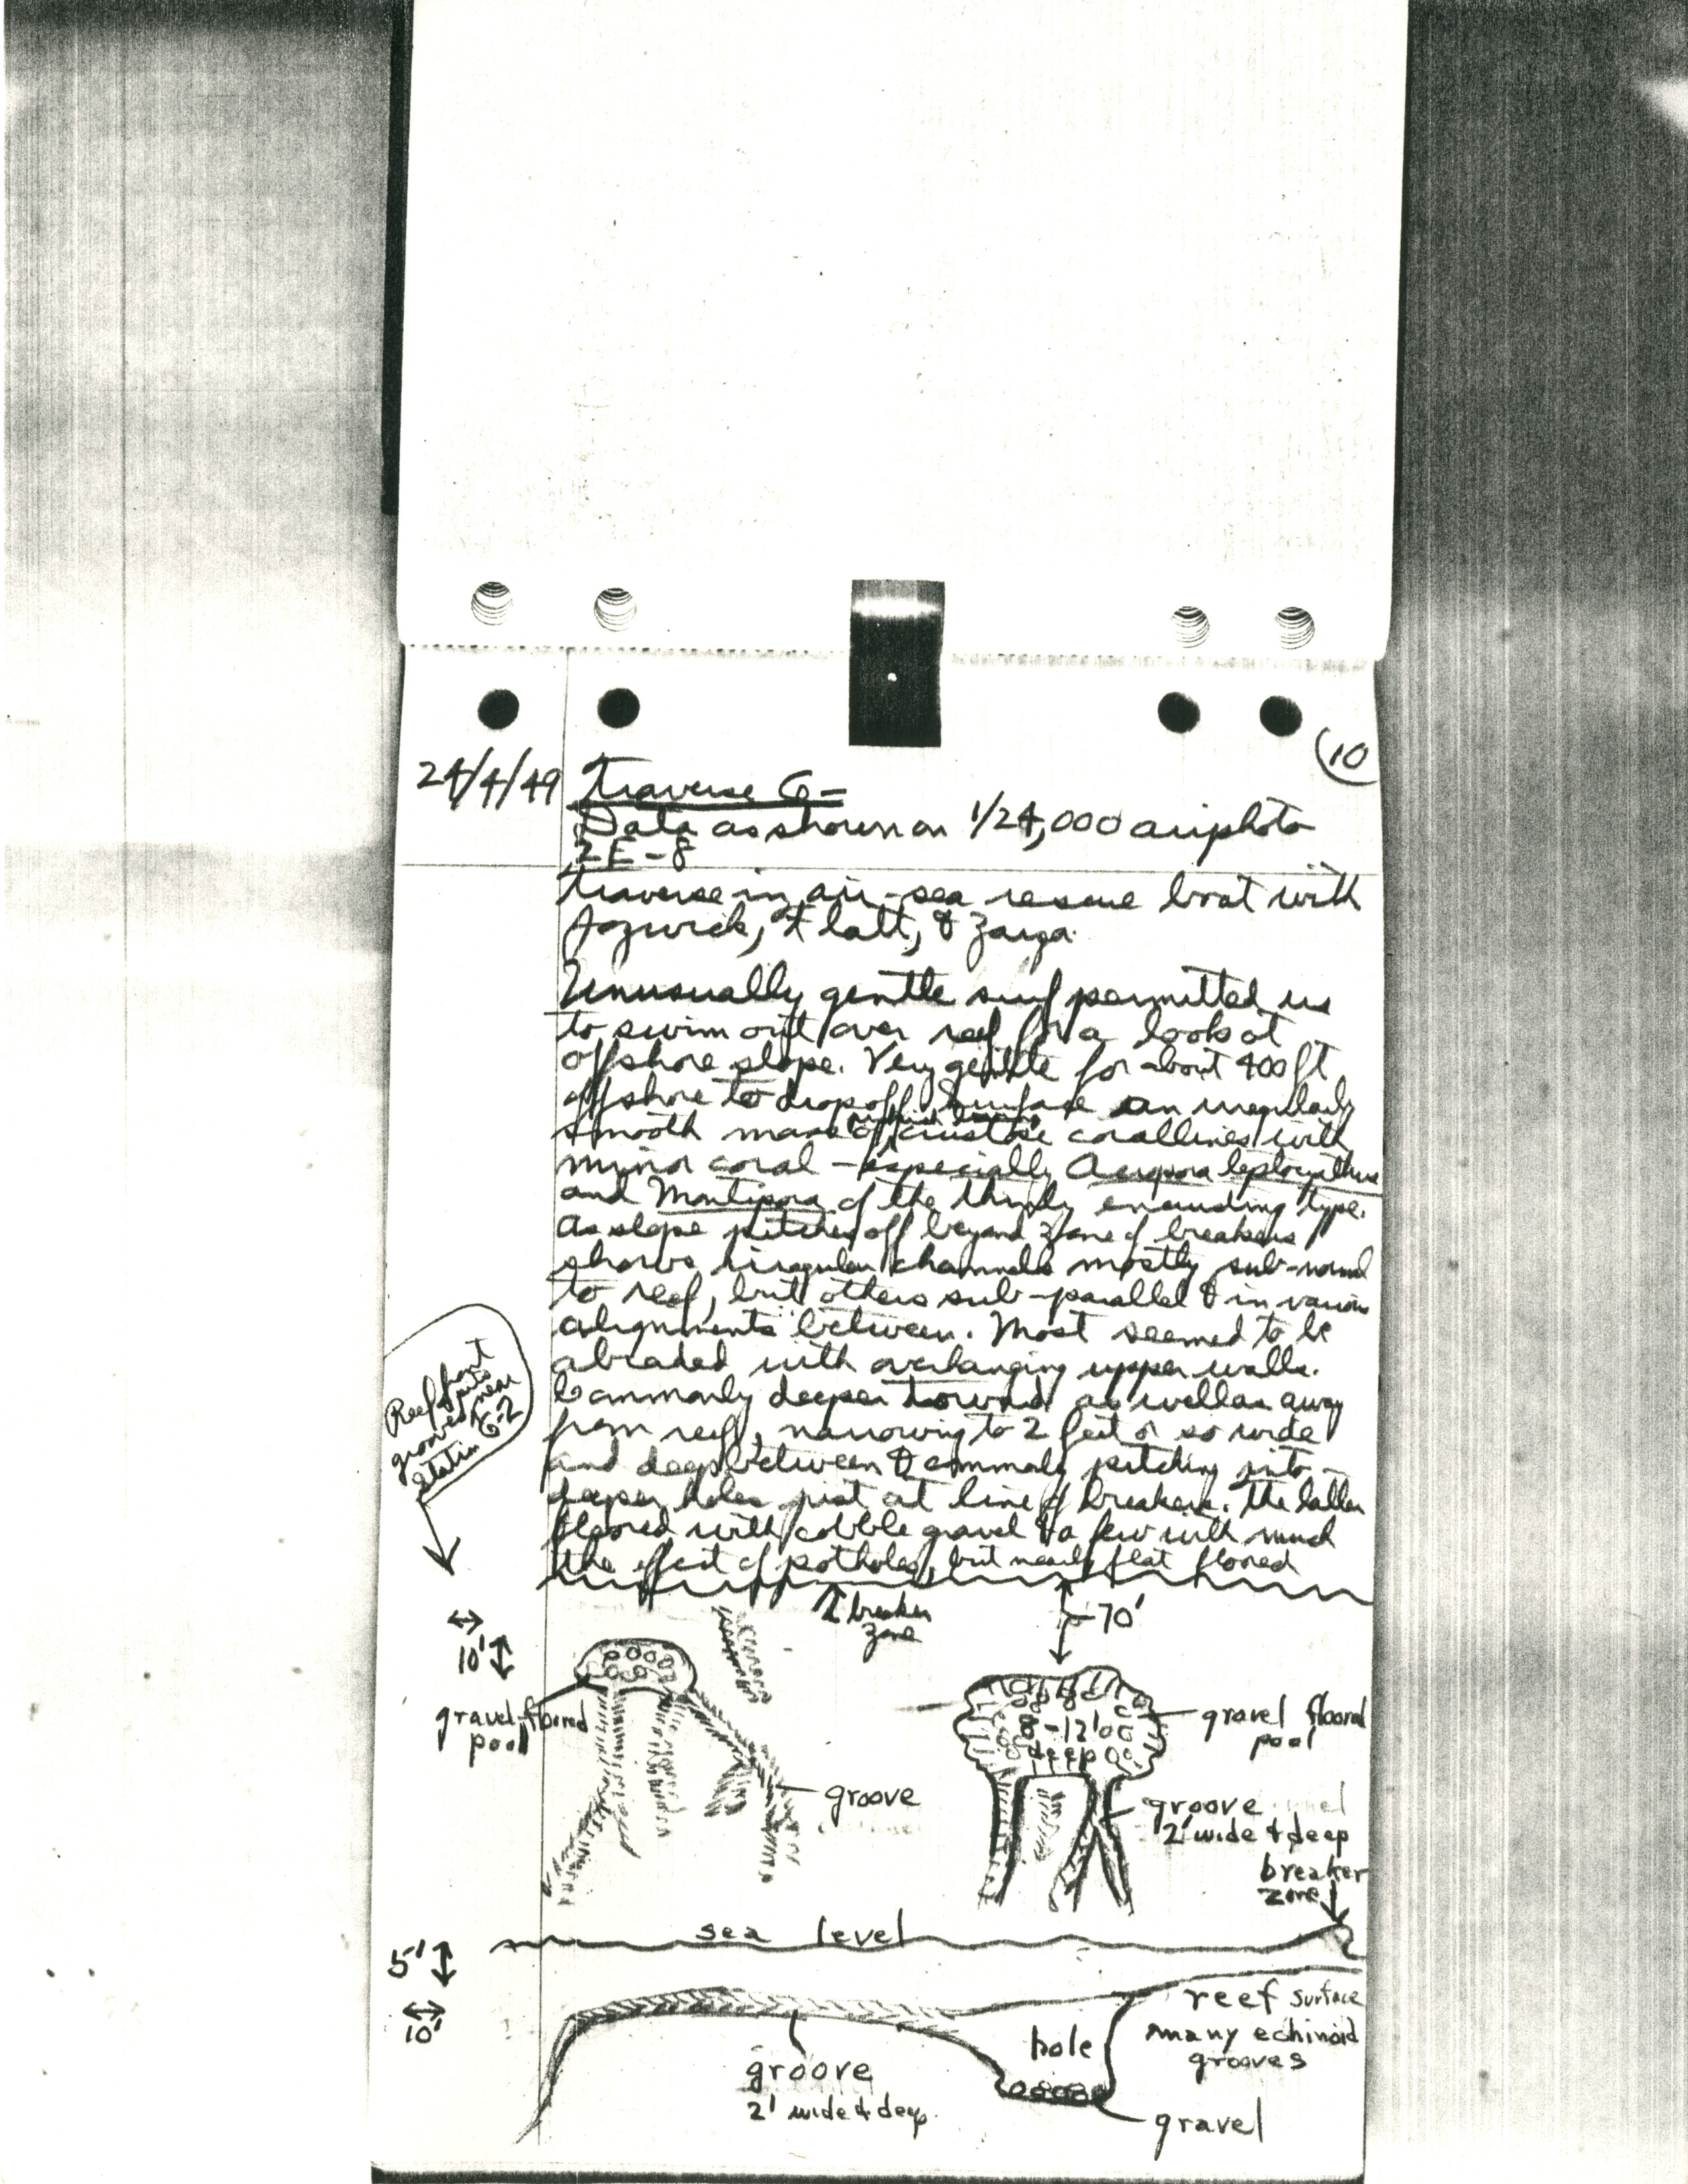 (10
24/4/49
Traverse G-
Data as shown on 1/24,000 airphoto
2E-8
Traverse in air-sea rescue boat with
Flatt, & Zarga.
Unusually gentle surf permitted us
to swim out over reef for a look at
offshore slope. Very gentle for about 400 ft
offshore to dropoff. Surface an irregularly
smooth mass of crustose corallines with
minor coral - especially Acropora leptocyathus
and Montipora of the thinly encrusting type.
As slope pitches off beyond zone of breakers
shows irregular channels mostly sub-normal
to reef, but others sub-parallel & in various
alignments between. Most seemed to be
abraded with overhanging upper walls.
Commonly deeper toward as well as away
from reef, narrowing to 2 feet or so wide
and deep between & commonly pitching into
deeper holes just at line of breakers. The latter
floored with cobble gravel & a few with much
the effect of potholes, but nearly flat floored
Reef front
grooves near
station G-2
↑ breaker
zone
70'
10'
gravel-floored
pool
groove
8-12'
deep
gravel floored
pool
groove
2' wide & deep
breaker
zone
sea level
5'
10'
reef surface
many echinoid
grooves
hole
groove
2' wide & deep
gravel